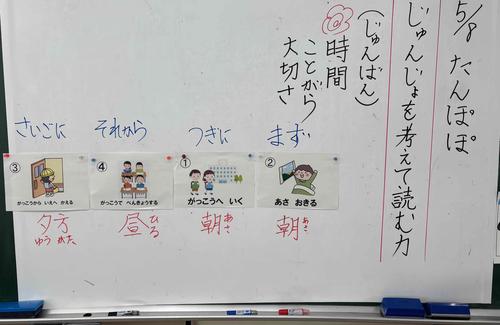 5/8 たんぽぽ
じゅんじょを考えて読む力
(じゅんばん)
時間
ことがら
大切さ
まず
つぎに
それから
さいごに
②
あさ おきる
①
がっこうへ いく
④
がっこうで べんきょうする
③
がっこうから いえへ かえる
朝 あさ
朝 あさ
昼 ひる
夕方 ゆうがた